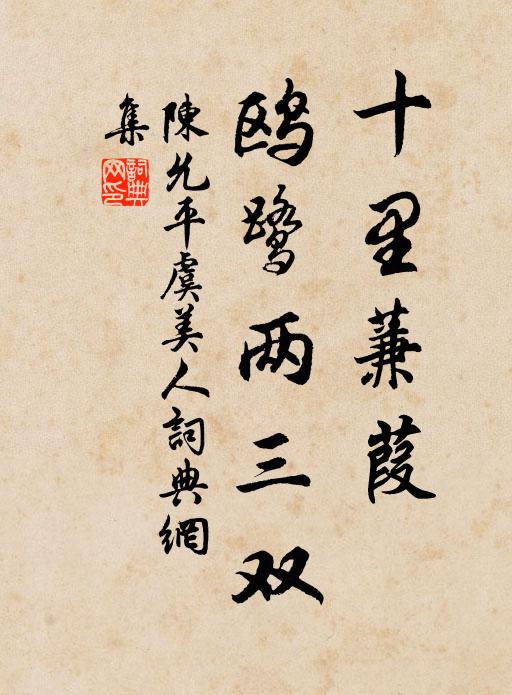 十里蒹葭
鸥鹭两三双
陳允平虞美人詞典網
集
詞典网印